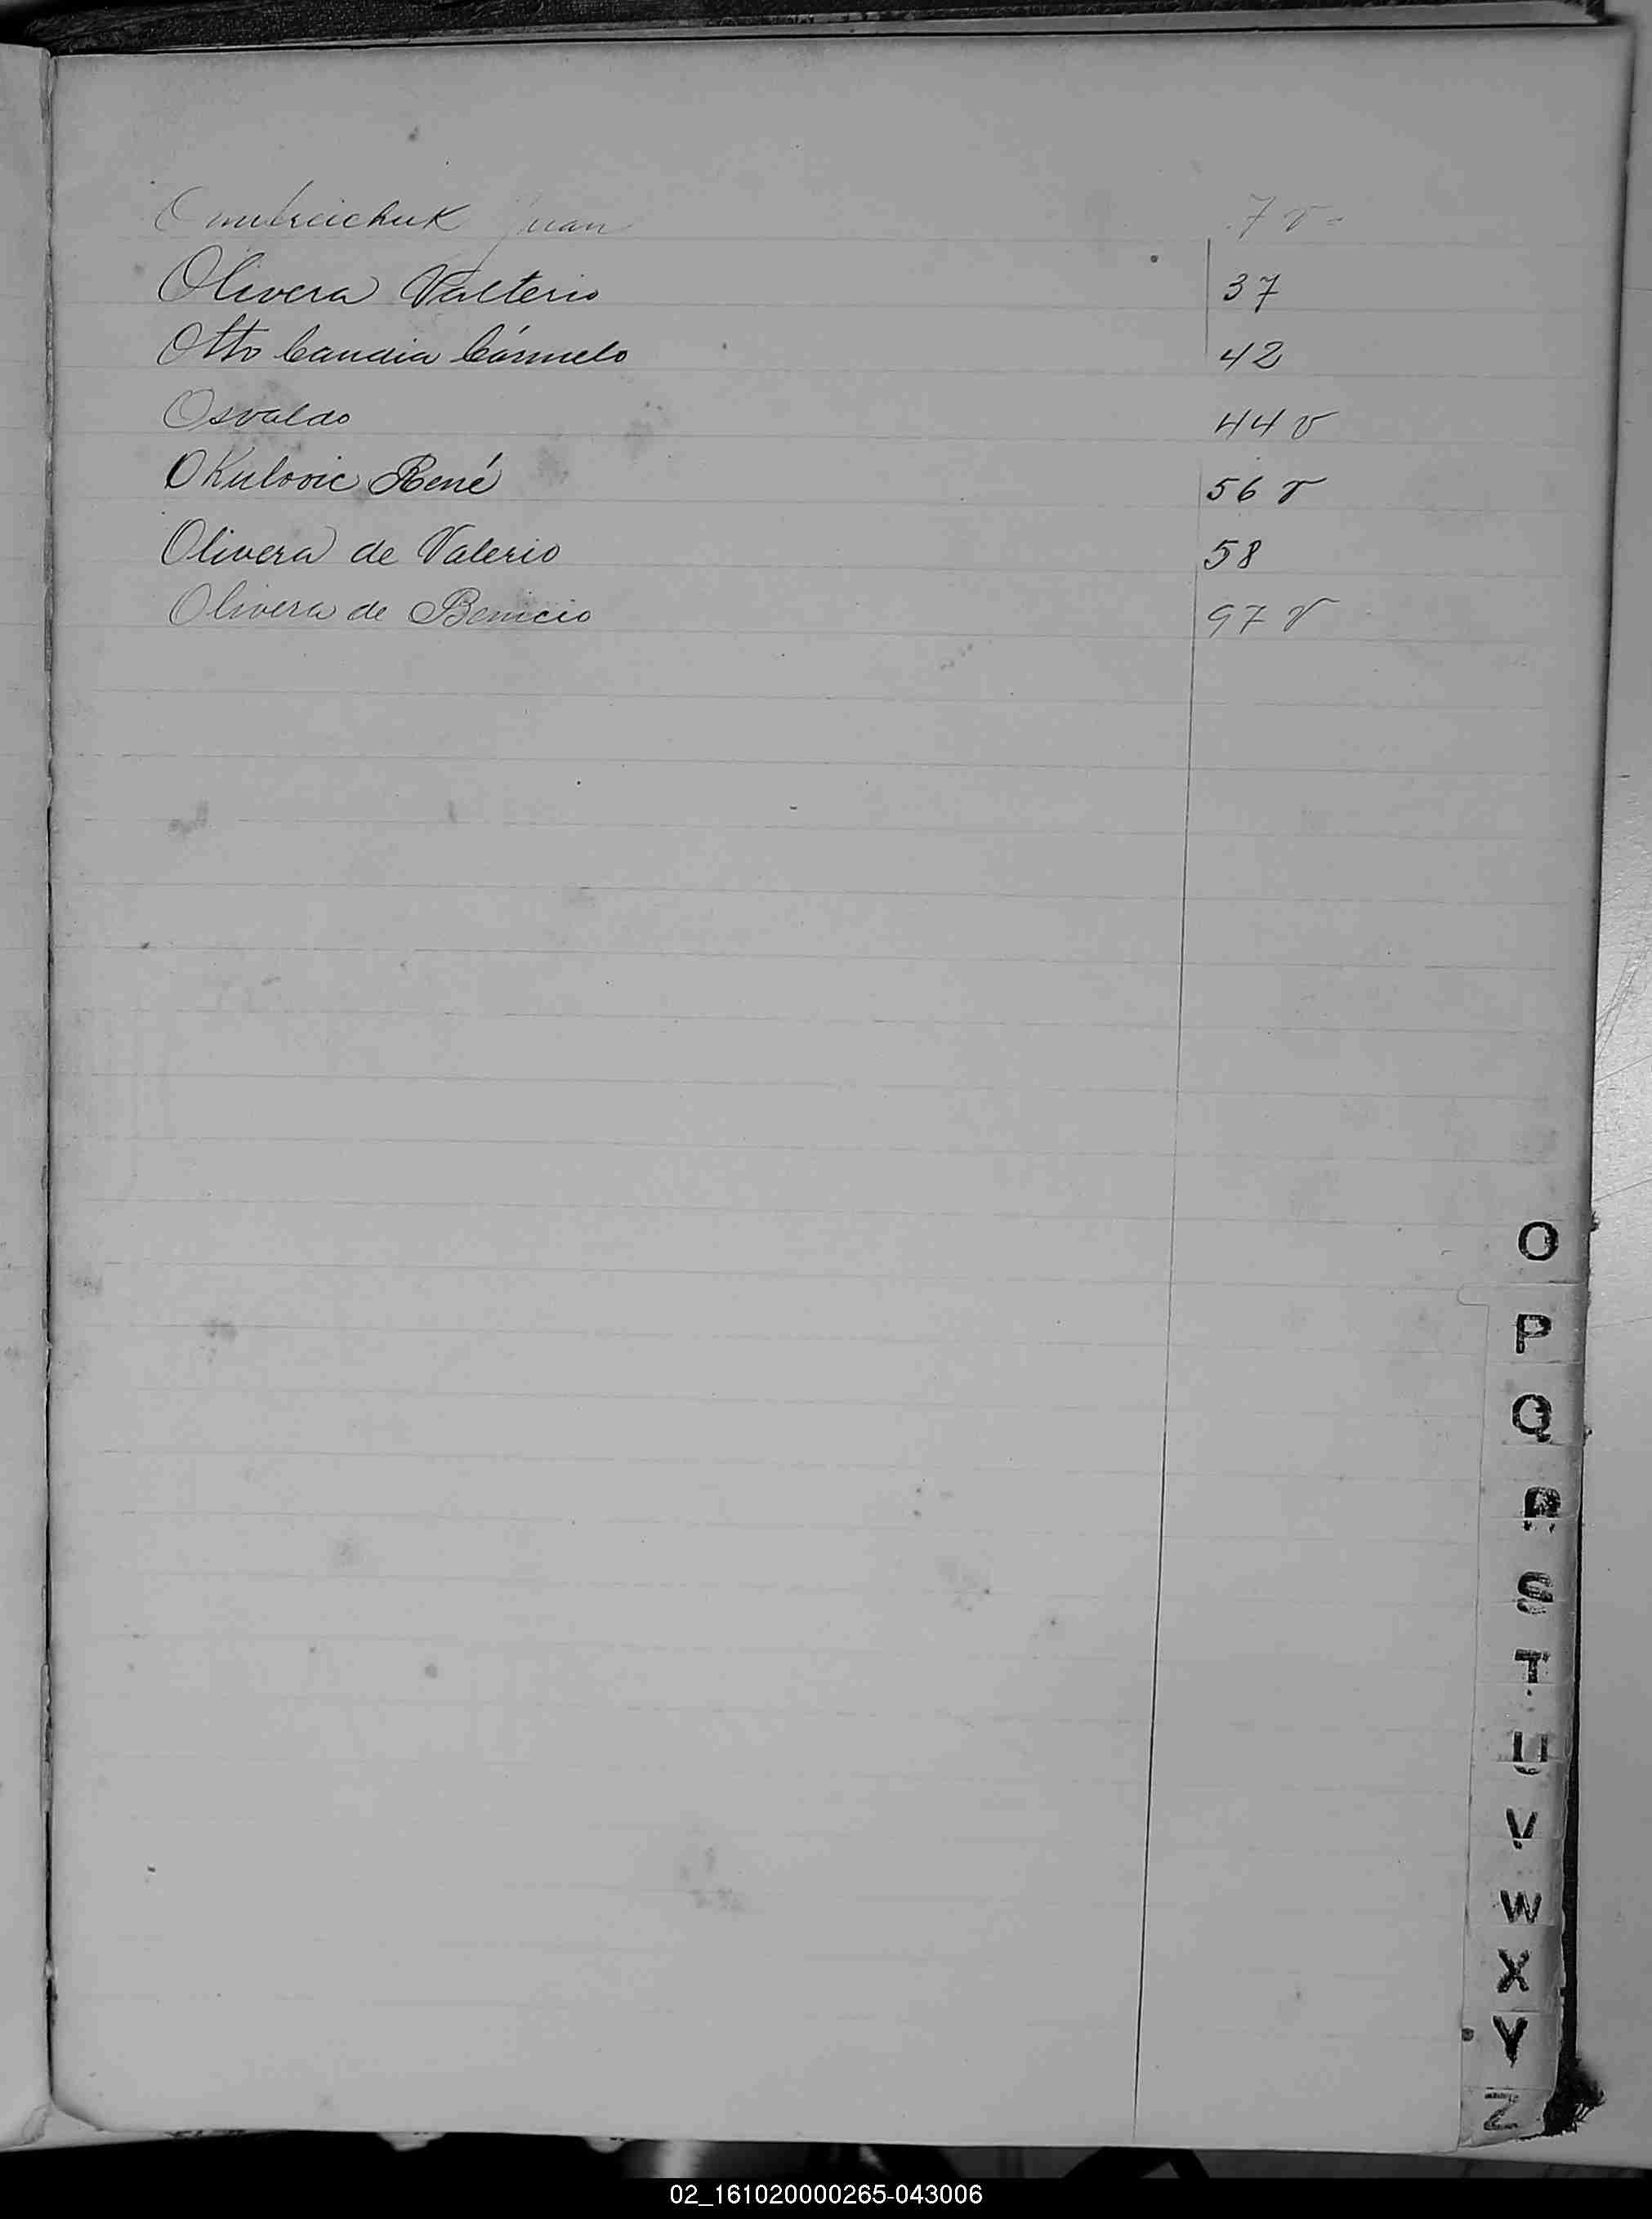 Juan 7 v-
Olivera Valterio 37
Otto Candia Cármelo 42
Osvaldo 44 v
Okulovic René 56 v
Olivera de Valerio 58
Olivera de Benicio 97 v
O
P
Q
R
S
T
U
V
W
X
Y
Z
02_161020000265-043006